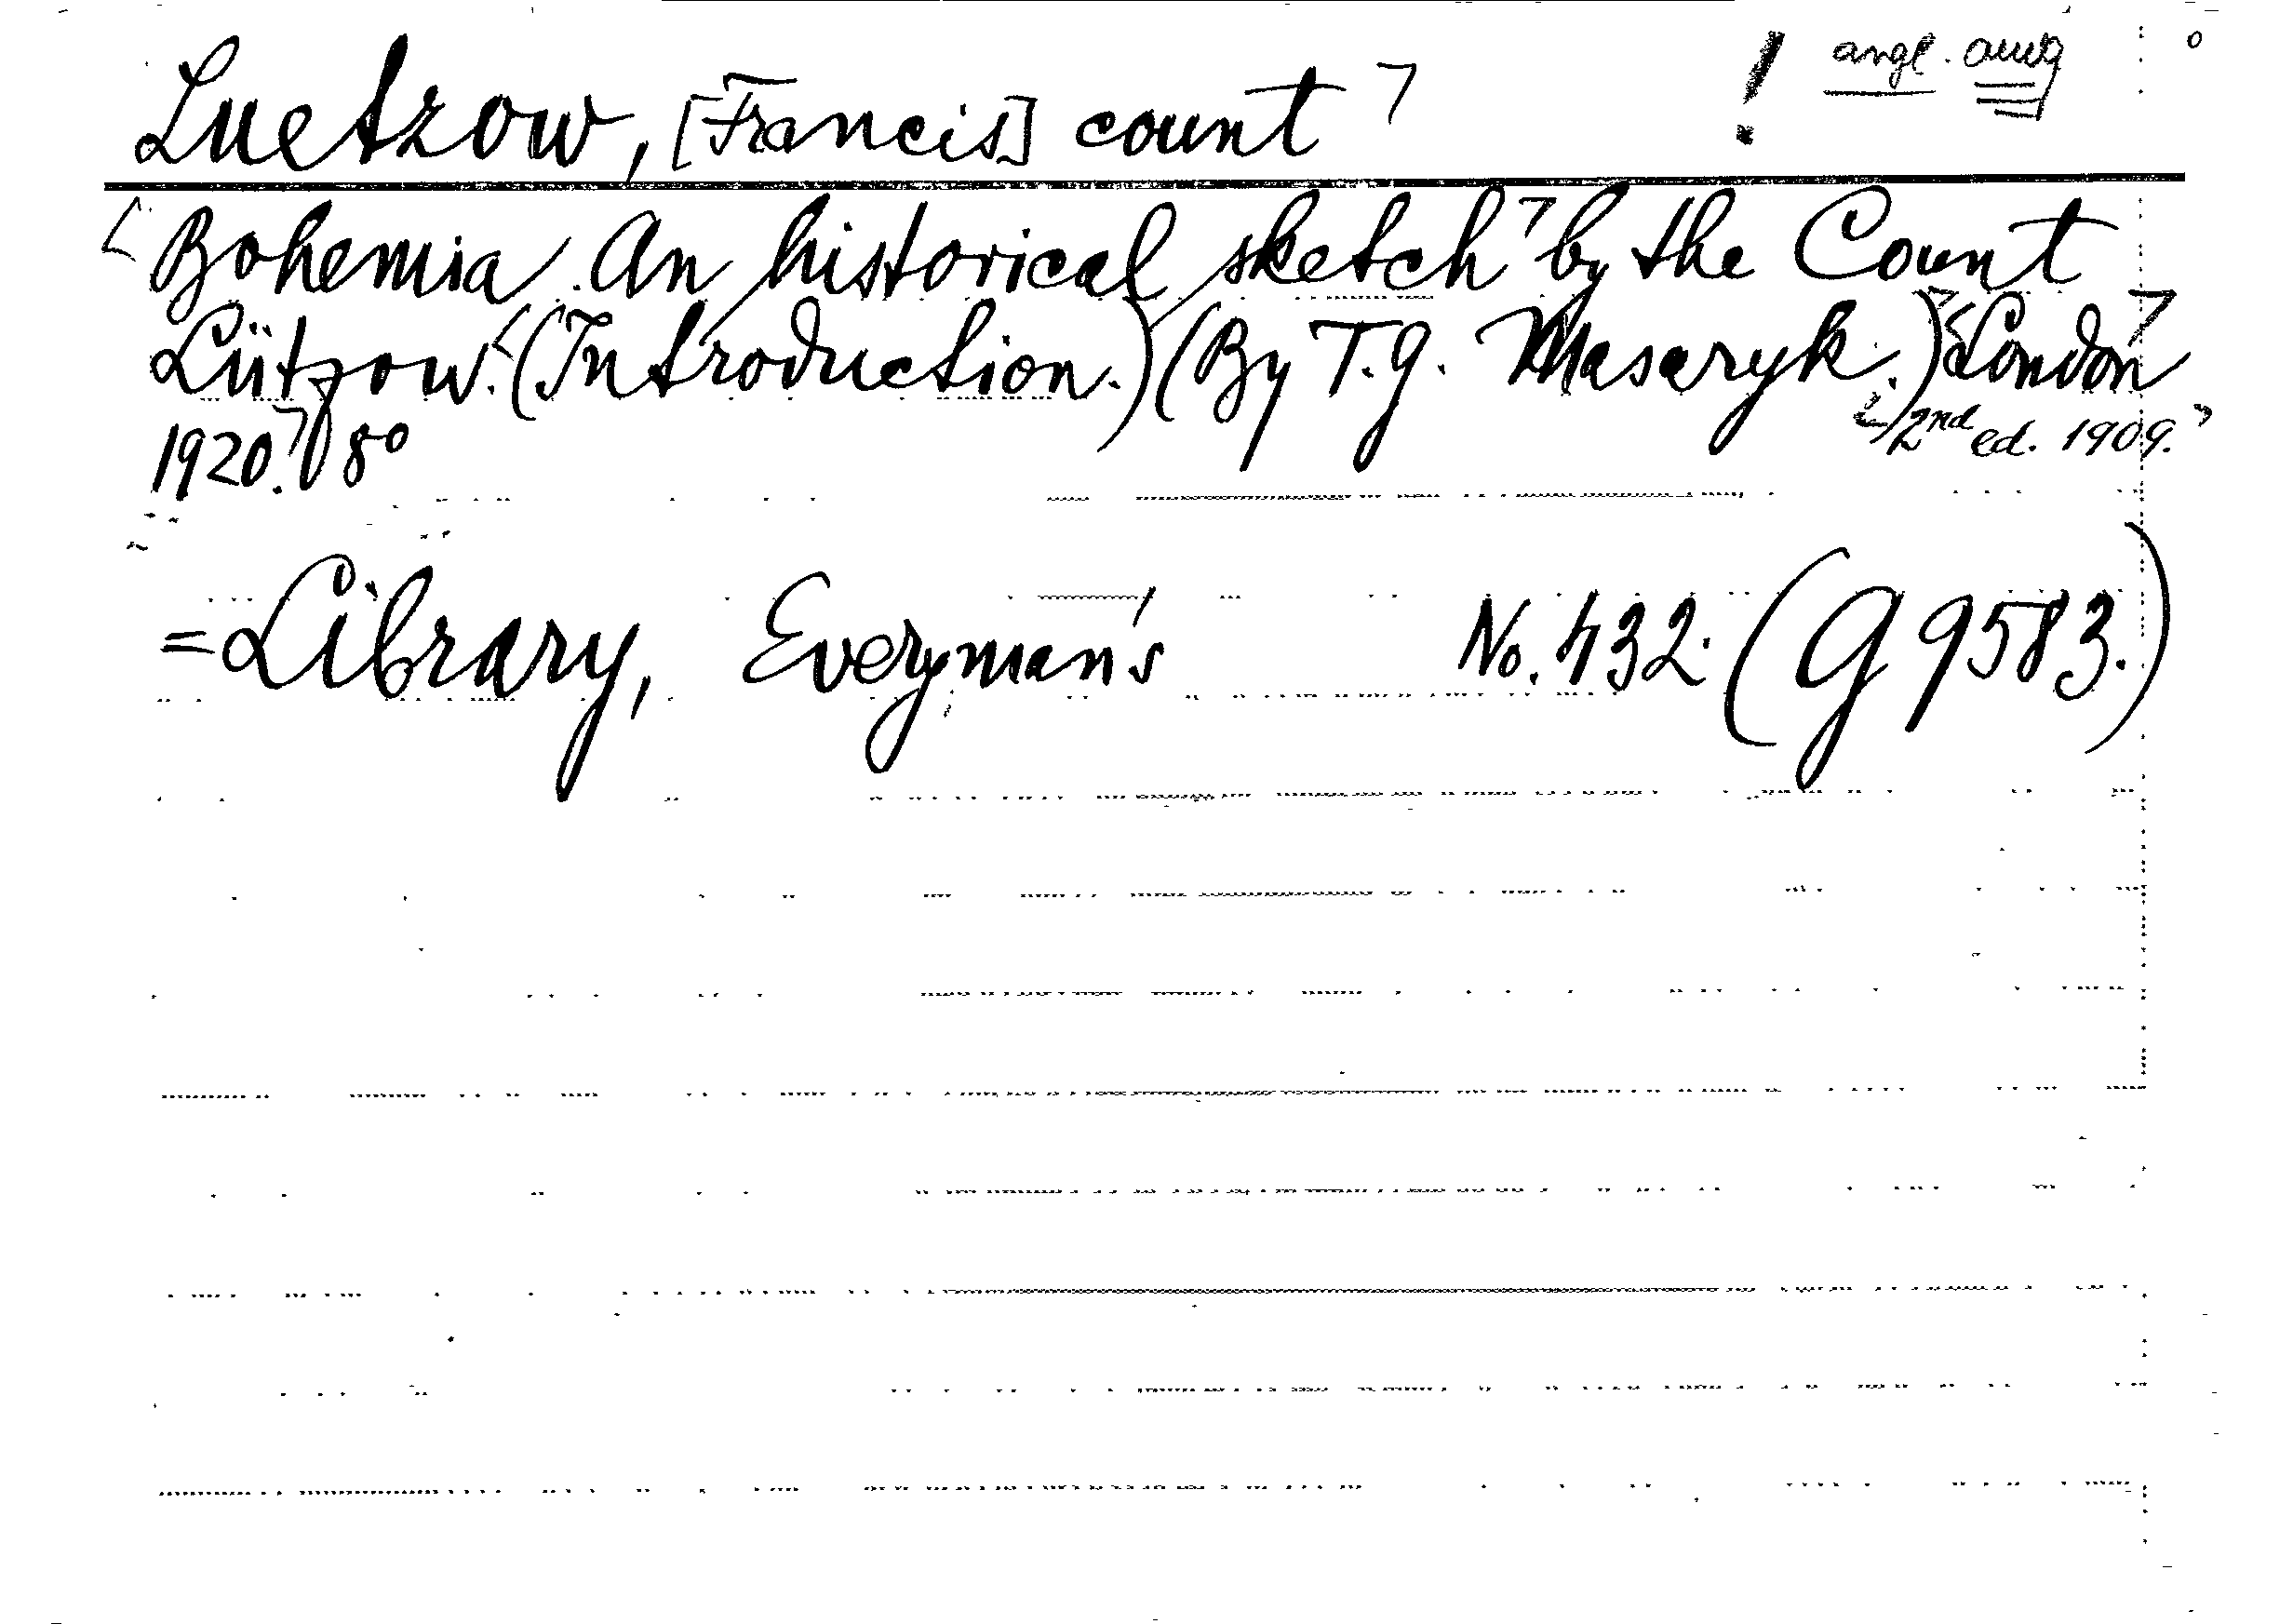 Luetzow, [Francis] count ! angl.
Bohemia. An historical sketch by the Count
Lützow. (Introduction.) (By T. G. Masaryk.) London
2nd ed. 1909.
1920. 8°
= Library, Everyman's No. 432. (G 9583.)